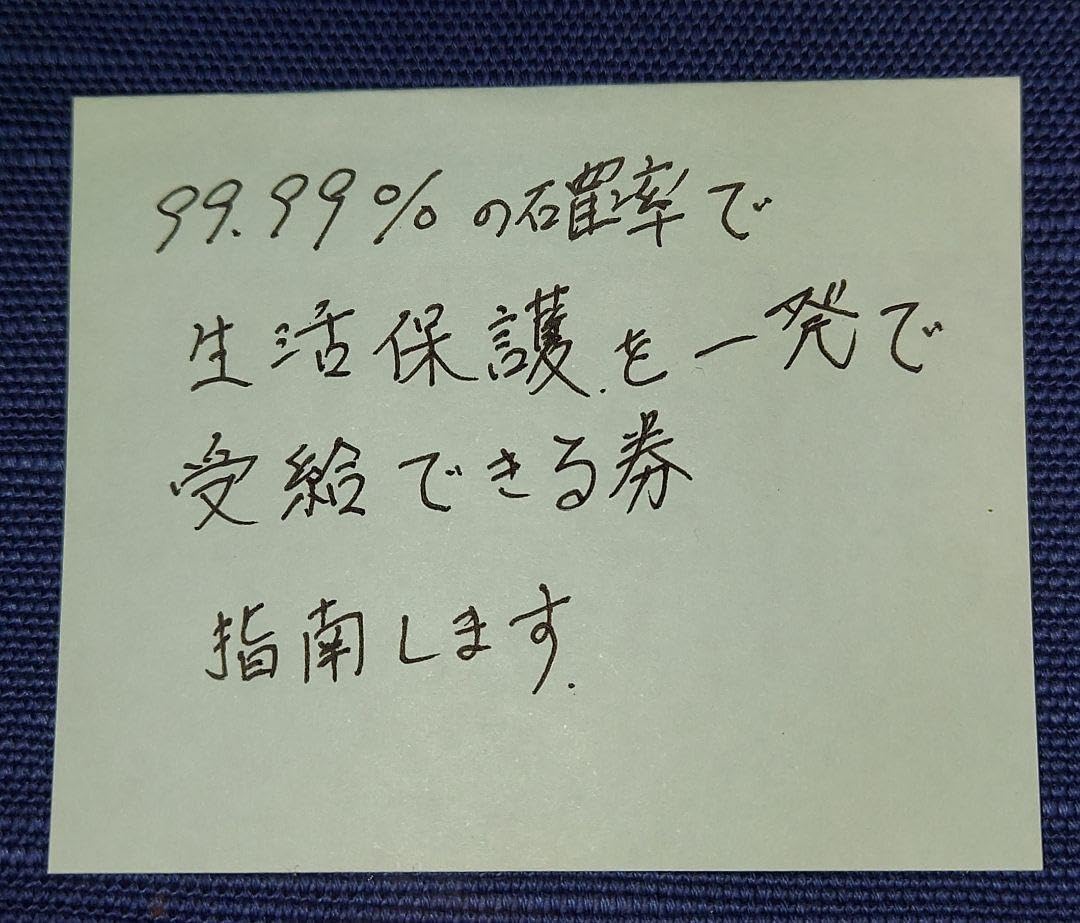 99.99%の確率で
生活保護を一発で
受給できる券
指南します.